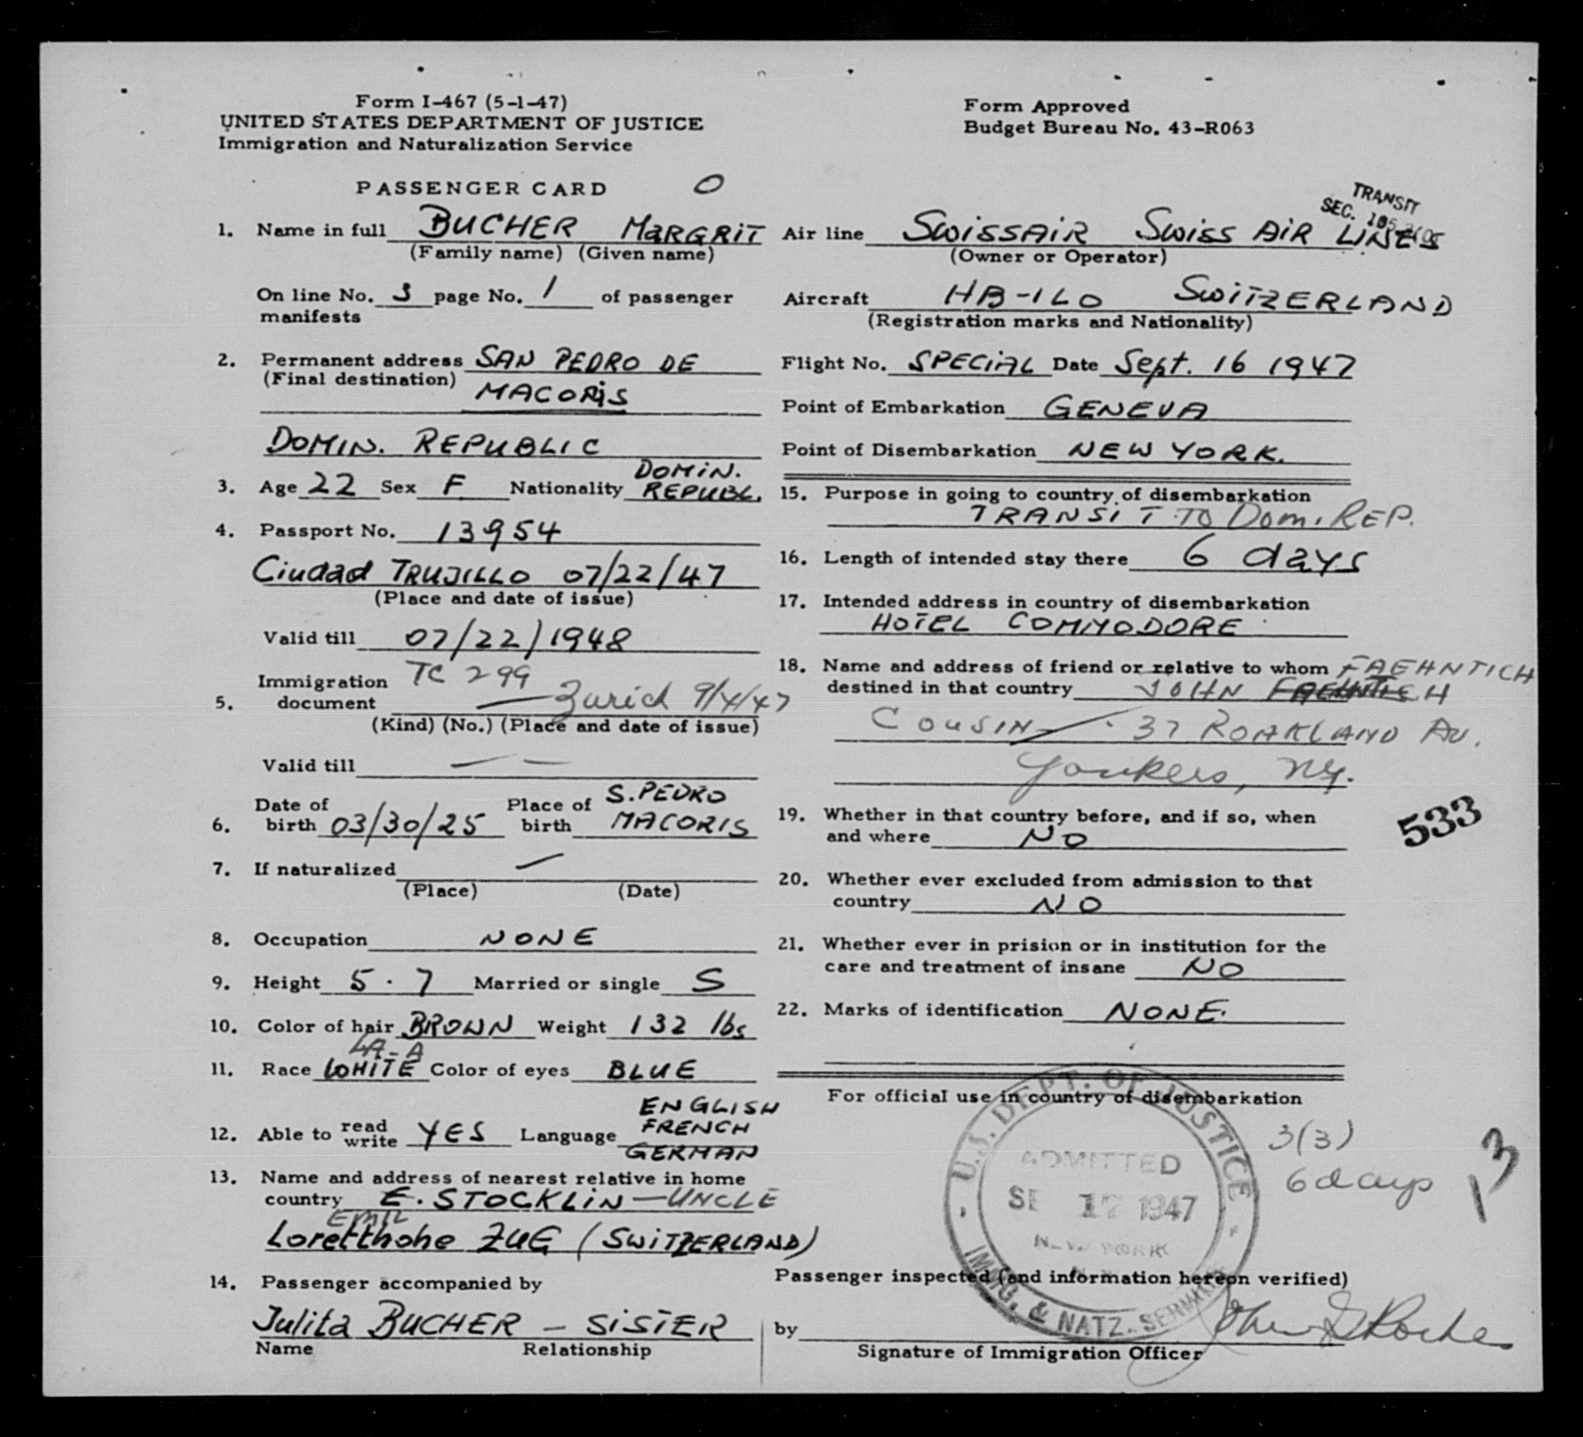 Form I-467 (5-1-47)
UNITED STATES DEPARTMENT OF JUSTICE
Immigration and Naturalization Service
Form Approved
Budget Bureau No. 43-R063
PASSENGER CARD O
TRANSIT
SEC.
1. Name in full BUCHER MARGRIT
(Family name) (Given name)
On line No. 3 page No. 1 of passenger
manifests
2. Permanent address SAN PEDRO DE
(Final destination) MACORIS
DOMIN. REPUBLIC
3. Age 22 Sex F Nationality DOMIN.
REPUBL.
4. Passport No. 13954
Ciudad TRUJILLO 07/22/47
(Place and date of issue)
Valid till 07/22/1948
Immigration TC 299
5. document — Zurich 9/4/47
(Kind) (No.) (Place and date of issue)
Valid till — —
6. Date of birth 03/30/25 Place of birth S. PEDRO
MACORIS
7. If naturalized —
(Place) (Date)
8. Occupation NONE
9. Height 5 · 7 Married or single S
10. Color of hair BROWN Weight 132 lbs
11. Race WHITE Color of eyes BLUE
12. Able to read write YES Language ENGLISH
FRENCH
GERMAN
13. Name and address of nearest relative in home
country E. STOCKLIN — UNCLE
EMIL
Loretthohe ZUG (SWITZERLAND)
14. Passenger accompanied by
Julita BUCHER — SISTER
Name Relationship
Air line SWISSAIR SWISS AIR LINES
(Owner or Operator)
Aircraft HB-ILO SWITZERLAND
(Registration marks and Nationality)
Flight No. SPECIAL Date Sept. 16 1947
Point of Embarkation GENEVA
Point of Disembarkation NEW YORK.
15. Purpose in going to country of disembarkation
TRANSIT TO Dom. REP.
16. Length of intended stay there 6 days
17. Intended address in country of disembarkation
HOTEL COMMODORE
18. Name and address of friend or relative to whom FAEHNTICH
destined in that country JOHN
COUSIN — 37 ROAKLAND AV.
Yonkers, NY.
19. Whether in that country before, and if so, when
and where NO
533
20. Whether ever excluded from admission to that
country NO
21. Whether ever in prision or in institution for the
care and treatment of insane NO
22. Marks of identification NONE.
For official use in country of disembarkation
U.S. DEPT. OF JUSTICE
ADMITTED
SE 17 1947
NEW YORK
IMMG. & NATZ. SERVICE
3(3)
6 days
13
Passenger inspected (and information hereon verified)
by
Signature of Immigration Officer